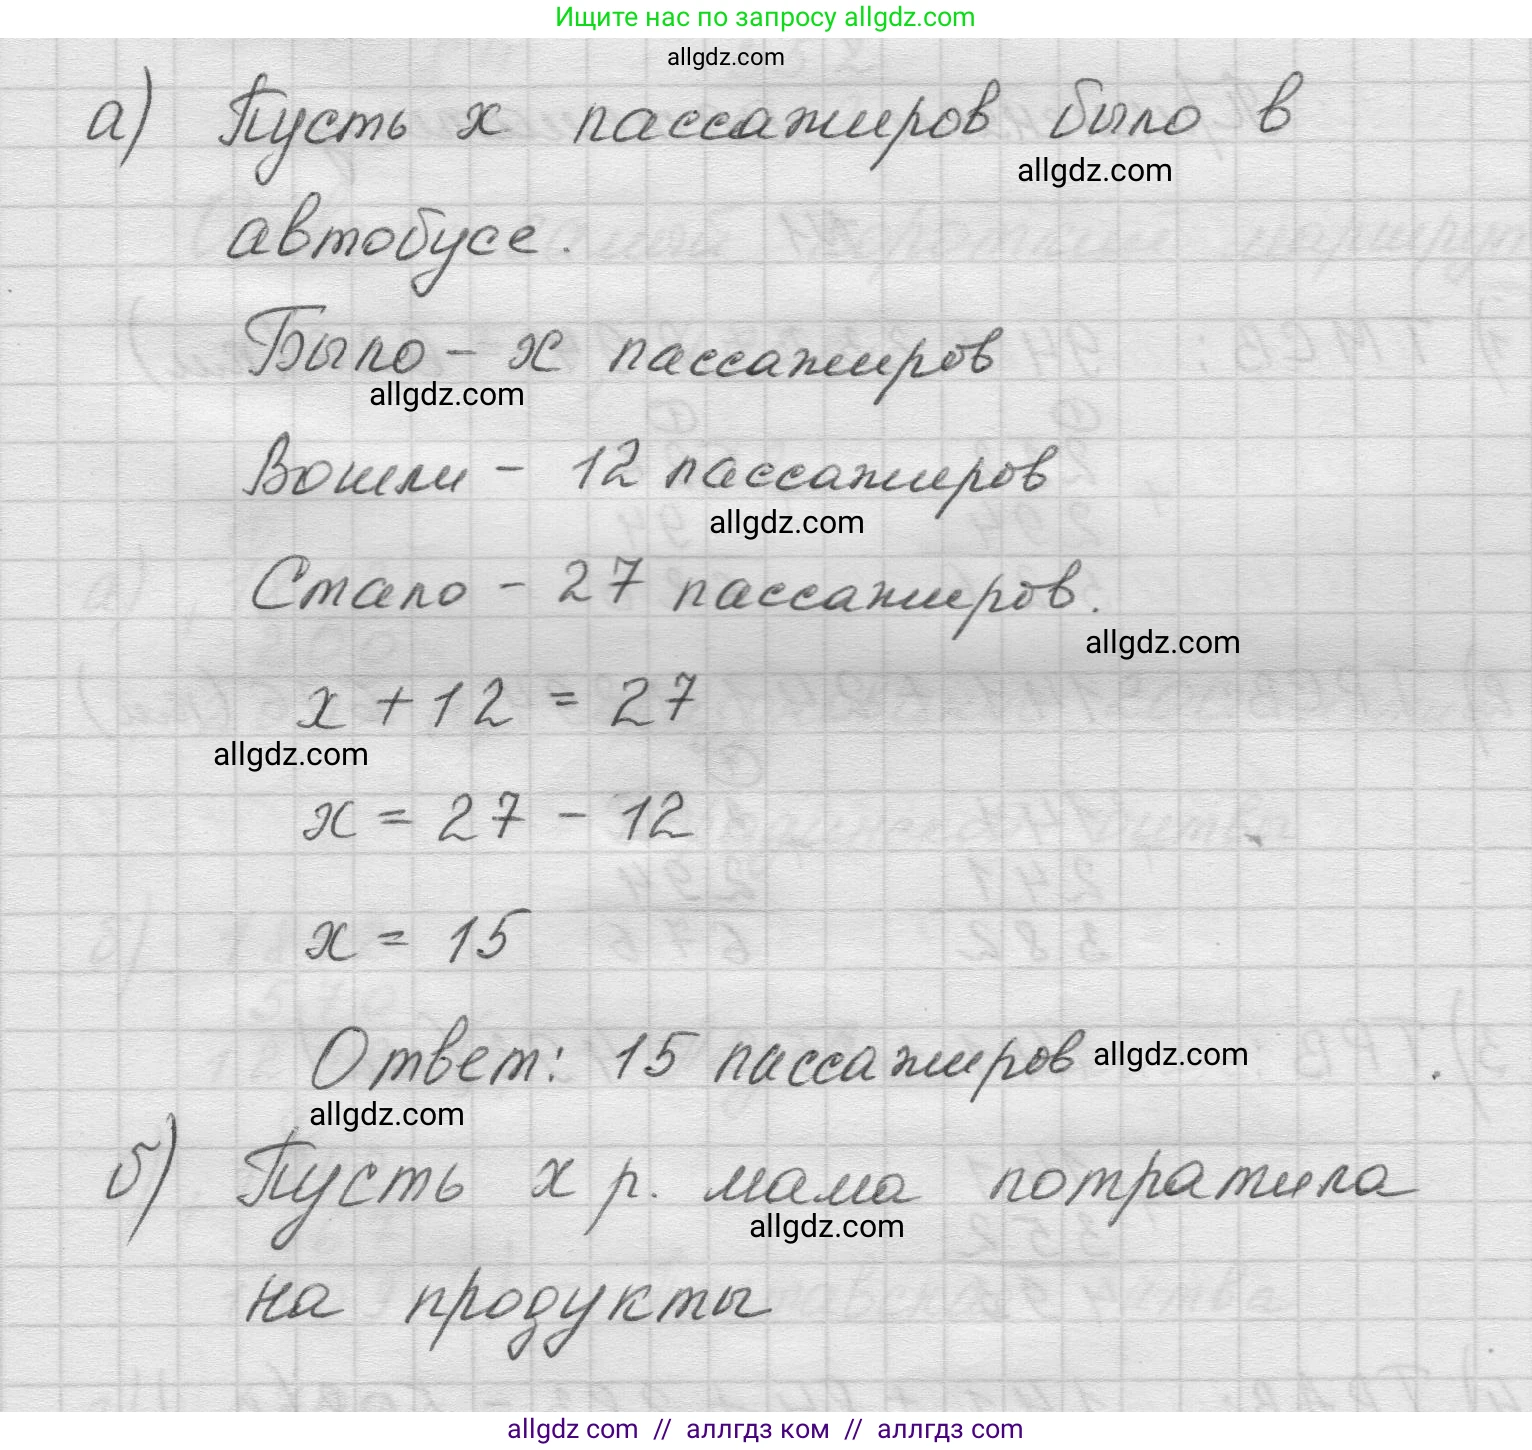 Ищите нас по запросу allgdz.com
allgdz.com
а) Пусть х пассажиров было в
allgdz.com
автобусе.
Было - х пассажиров
allgdz.com
Вошли - 12 пассажиров
allgdz.com
Стало - 27 пассажиров.
allgdz.com
х + 12 = 27
allgdz.com
х = 27 - 12
х = 15
Ответ: 15 пассажиров allgdz.com
allgdz.com
б) Пусть х р. мама потратила
allgdz.com
на продукты
allgdz com // аллгдз ком // аллгдз com